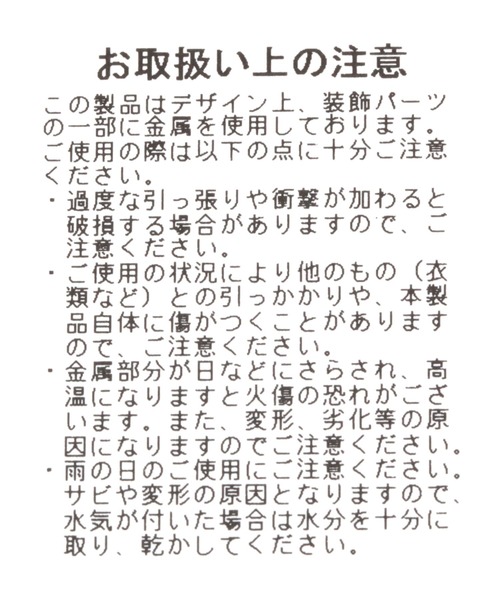 お取扱い上の注意
この製品はデザイン上、装飾パーツ
の一部に金属を使用しております。
ご使用の際は以下の点に十分ご注意
ください。
・過度な引っ張りや衝撃が加わると
破損する場合がありますので、ご
注意ください。
・ご使用の状況により他のもの（衣
類など）との引っかかりや、本製
品自体に傷がつくことがあります
ので、ご注意ください。
・金属部分が日などにさらされ、高
温になりますと火傷の恐れがござ
います。また、変形、劣化等の原
因になりますのでご注意ください。
・雨の日のご使用にご注意ください。
サビや変形の原因となりますので、
水気が付いた場合は水分を十分に
取り、乾かしてください。